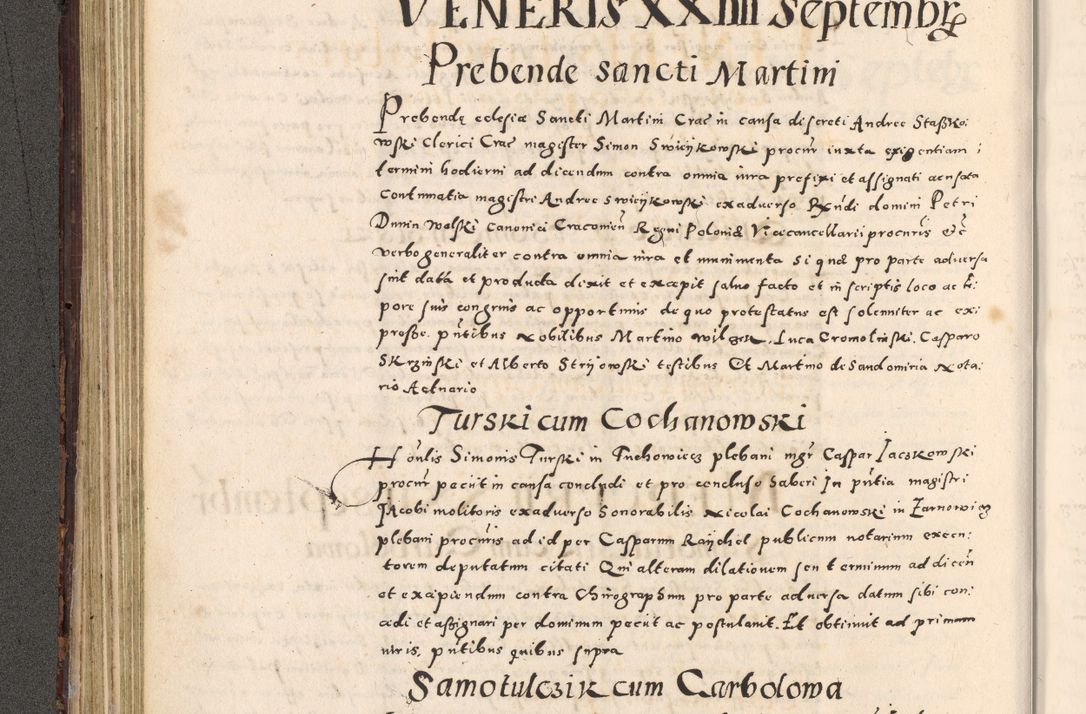 VENERIS XXIIII Septembr
Prebende Sancti Martini
Prebendę eclesiæ Sancti Martini Crac in causa discreti Andree Staszko
wski Clerici Crac magister Simon Swiencykowski procur iuxta exigentiam
termini hodierni ad dicendum contra omnia iura prefixi et assignati acusata
Contumatia magistri Andree Swieykowski exadverso Rndi domini Petri
Dunin Wolski Canonici Cracovien Regni Poloniæ Vicecancellarii procuris etc
verbo generaliter contra omnia iura et munimenta si quæ pro parte adversa
sint data et producta dixit et excepit salvo facto et in scriptis loco ac te
pore suis congruis ac opportunis de quo protestatus est solenniter ac exi
presse. pntibus Nobilibus Martino Luca Cromolinski, Casparo
Skrzinski et Alberto Stryowski testibus Et Martino de Sandomiria Nota
rio Actuario
Turski cum Cochanowski
Honlis Simonis Turski in Tuchowicz plebani mgr Caspar Jaczkowski
procur pecut in causa concludi et pro concluso haberi In pntia magistri
Jacobi molitoris exadverso honorabilis Nicolai Cochanowski in Zarnowicz
plebani procuris ad id per Casparum Raychel publicum notarium execu:
torem deputatum citati Qui alteram dilationem seu terminum ad dicen
et excipiendum contra Chirographum pro parte adversa datum sibi con:
cedi et assignari per dominum pecut ac postulavit. Et obtinuit ad primum
iuris, pntibus quibus supra
Samotulczik cum Carbolowa